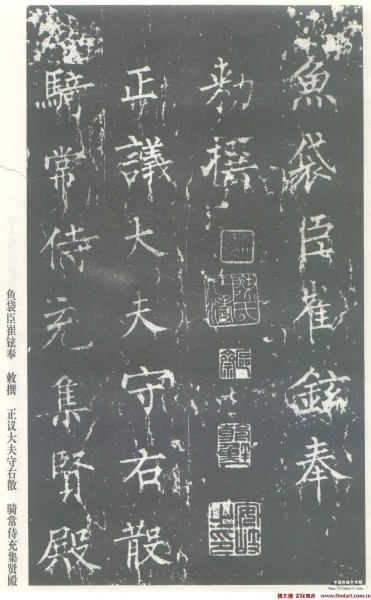 魚袋臣崔鉉奉
敕撰
正議大夫守右散
騎常侍充集賢殿
鱼袋臣崔铉奉 敕撰 正议大夫守右散 骑常侍充集贤殿
www.findart.com.cn